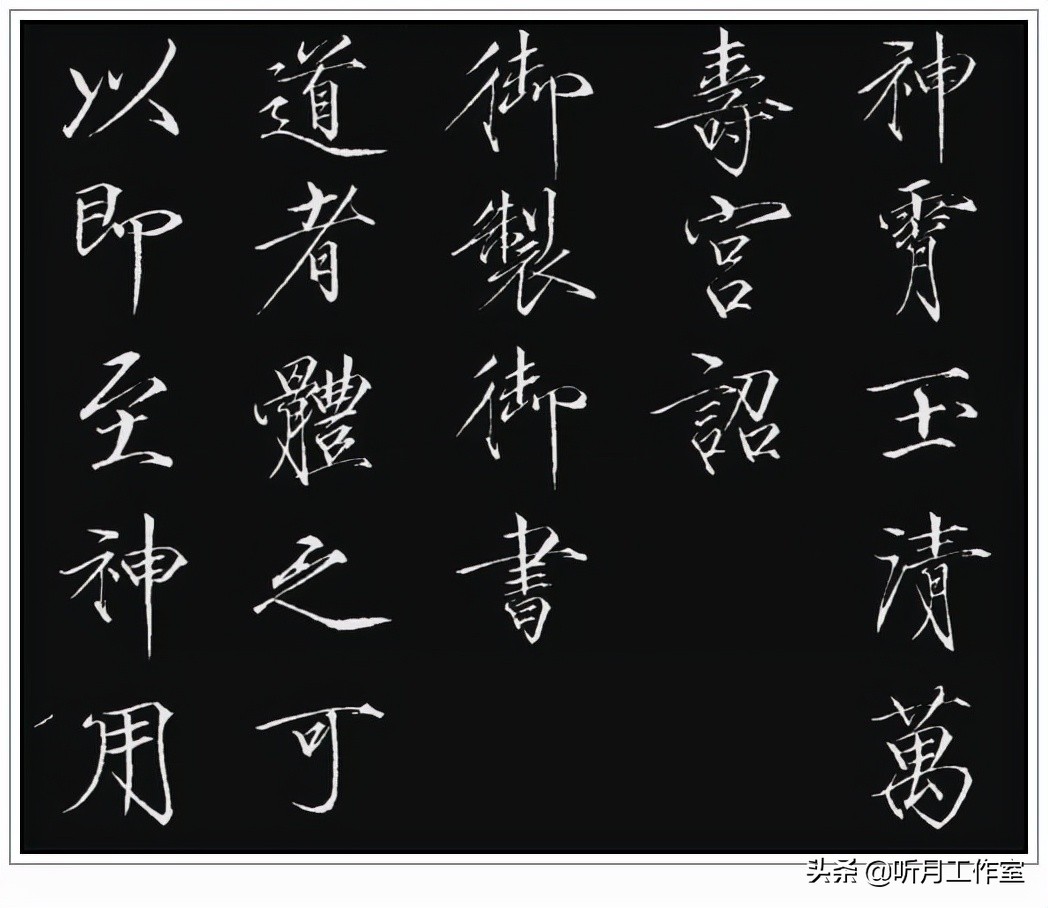 神霄玉清萬
壽宮詔
御製御書
道者體之可
以即至神用
头条 @听月工作室